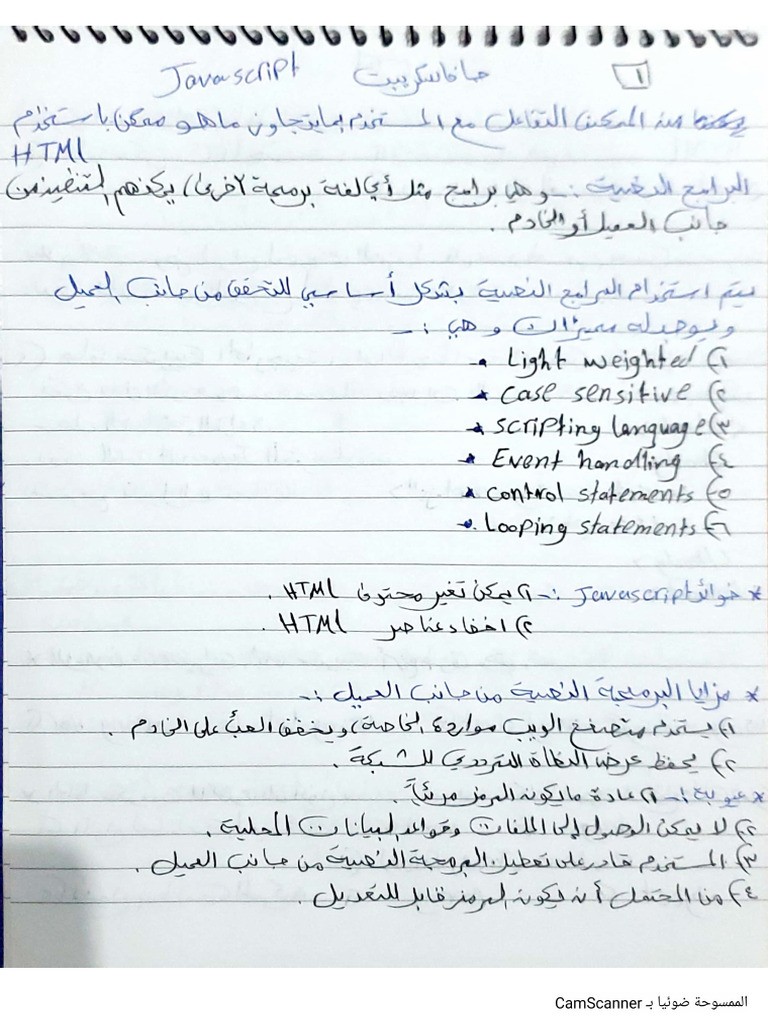 ١
جافاسكريبت Javascript
من الممكن التفاعل مع المستخدم بما يتجاوز ما هو ممكن باستخدام
HTML
البرامج النصية :- وهي برامج مثل أي لغة برمجة أخرى، يمكنهم التنفيذ من
جانب العميل أو الخادم .
يتم استخدام البرامج النصية بشكل أساسي للتحقق من جانب العميل
ويوجد له مميزات وهي :-
١) Light weighted
٢) Case sensitive
٣) Scripting language
٤) Event handling
٥) Control statements
٦) Looping statements
* فوائد Javascript :- ١) يمكن تغير محتوى HTML .
٢) اخفاء عناصر HTML .
* مزايا البرمجة النصية من جانب العميل :-
١) يستخدم متصفح الويب موارده الخاصة، ويخفف العبأ على الخادم .
٢) يحفظ عرض النطاق الترددي للشبكة .
* عيوبه :- ١) عادة ما يكون الرمز مرئياً .
٢) لا يمكن الوصول إلى الملفات وقواعد البيانات المحلية .
٣) المستخدم قادر على تعطيل البرمجة النصية من جانب العميل .
٤) من المحتمل أن يكون الرمز قابل للتعديل .
الممسوحة ضوئيا بـ CamScanner